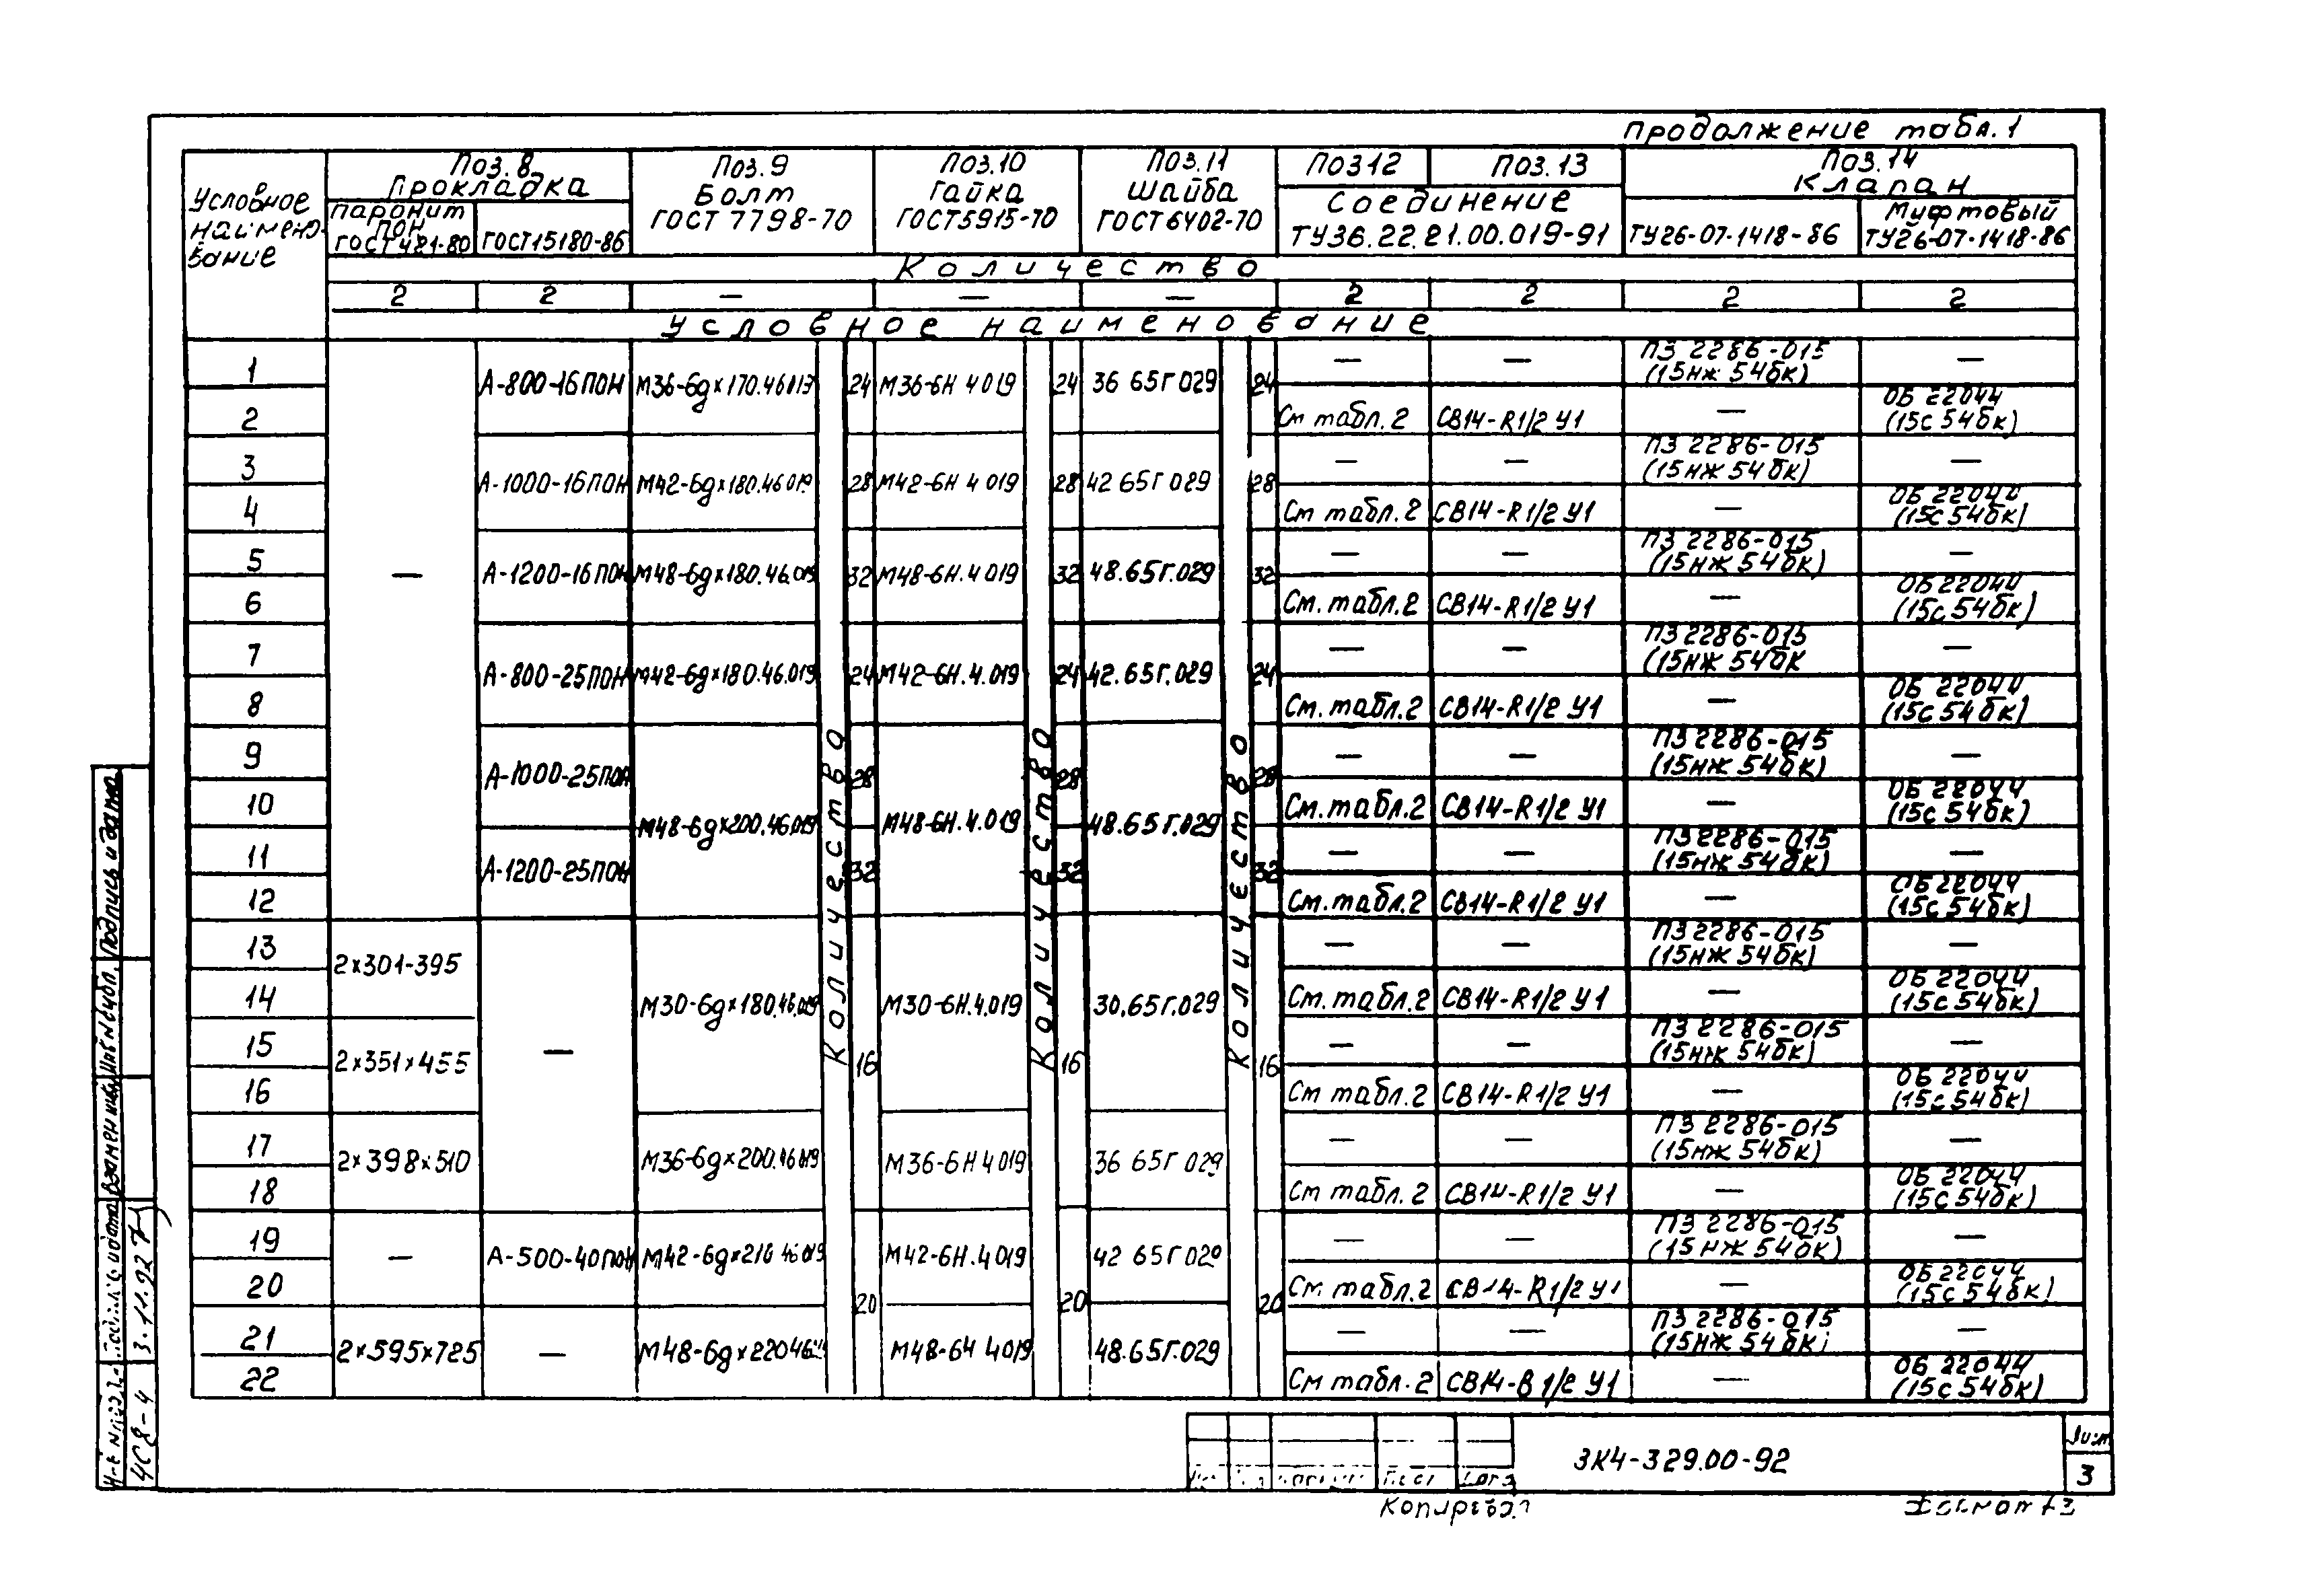 продолжение табл.1
Условное
наимено-
вание
Поз.8
Прокладка
паронит
ПОН
ГОСТ 481-80
ГОСТ15180-86
Поз.9
Болт
ГОСТ 7798-70
Поз.10
Гайка
ГОСТ5915-70
Поз.11
Шайба
ГОСТ6402-70
Поз12
Поз.13
Соединение
ТУ36.22.21.00.019-91
Поз.14
Клапан
ТУ26-07-1418-86
Муфтовый
ТУ26-07-1418-86
Количество
2 2 — — — 2 2 2 2
Условное наименование
1 — А-800-16ПОН М36-6g×170.46.019 24 М36-6Н 4 019 24 36 65Г 029 24 — — ПЗ 2286-015 —
(15нж 54бк)
2 См табл.2 СВ14-R1/2 У1 — ОБ 22044
(15с 54бк)
3 А-1000-16ПОН М42-6g×180.46 019 28 М42-6Н 4 019 28 42 65Г 029 28 — — ПЗ 2286-015 —
(15нж 54бк)
4 См табл.2 СВ14-R1/2 У1 — ОБ 22044
(15с 54бк)
5 А-1200-16ПОН М48-6g×180.46.019 32 М48-6Н.4 019 32 48.65Г.029 32 — — ПЗ 2286-015 —
(15нж 54бк)
6 См.табл.2 СВ14-R1/2 У1 — ОБ22044
(15с 54бк)
7 А-800-25ПОН М42-6g×180.46.019 24 М42-6Н.4.019 24 42.65Г.029 24 — — ПЗ 2286-015 —
(15нж 54бк
8 См.табл.2 СВ14-R1/2 У1 — ОБ 22044
(15с 54бк)
9 А-1000-25ПОН М48-6g×200.46.019 28 М48-6Н.4.019 28 48.65Г.029 28 — — ПЗ 2286-015 —
(15нж 54бк)
10 См.табл.2 СВ14-R1/2 У1 — ОБ 22044
(15с 54бк)
11 А-1200-25ПОН 32 32 32 — — ПЗ2286-015 —
(15нж 54бк)
12 См.табл.2 СВ14-R1/2 У1 — ОБ22044
(15с 54бк)
13 2×301-395 — М30-6g×180.46.019 16 М30-6Н.4.019 16 30.65Г.029 16 — — ПЗ2286-015 —
(15нж 54бк)
14 См.табл.2 СВ14-R1/2 У1 — ОБ 22044
(15с 54бк)
15 2×351×455 — — ПЗ 2286-015 —
(15нж 54бк)
16 См табл.2 СВ14-R1/2 У1 — ОБ 22044
(15с 54бк)
17 2×398×510 М36-6g×200.46 019 М36-6Н 4 019 36 65Г 029 — — ПЗ 2286-015 —
(15нж 54бк)
18 См табл.2 СВ14-R1/2 У1 — ОБ 22044
(15с 54бк)
19 — А-500-40ПОН М42-6g×210 46 019 20 М42-6Н.4 019 20 42 65Г 029 20 — — ПЗ 2286-015 —
(15нж 54бк)
20 См табл.2 СВ14-R1/2 У1 — ОБ 22044
(15с 54бк)
21 2×595×725 — М48-6g×220 46 М48-6Н 4 019 48.65Г.029 — — ПЗ 2286-015 —
(15нж 54бк)
22 См табл.2 СВ14-В 1/2 У1 — ОБ 22044
(15с 54бк)
Количество
Количество
Количество
Подпись и дата
Инв N дубл.
Взамен инв.
3.11.92
4С8-4
ЗК4-329.00-92
Лист
3
Копировал
Формат А3